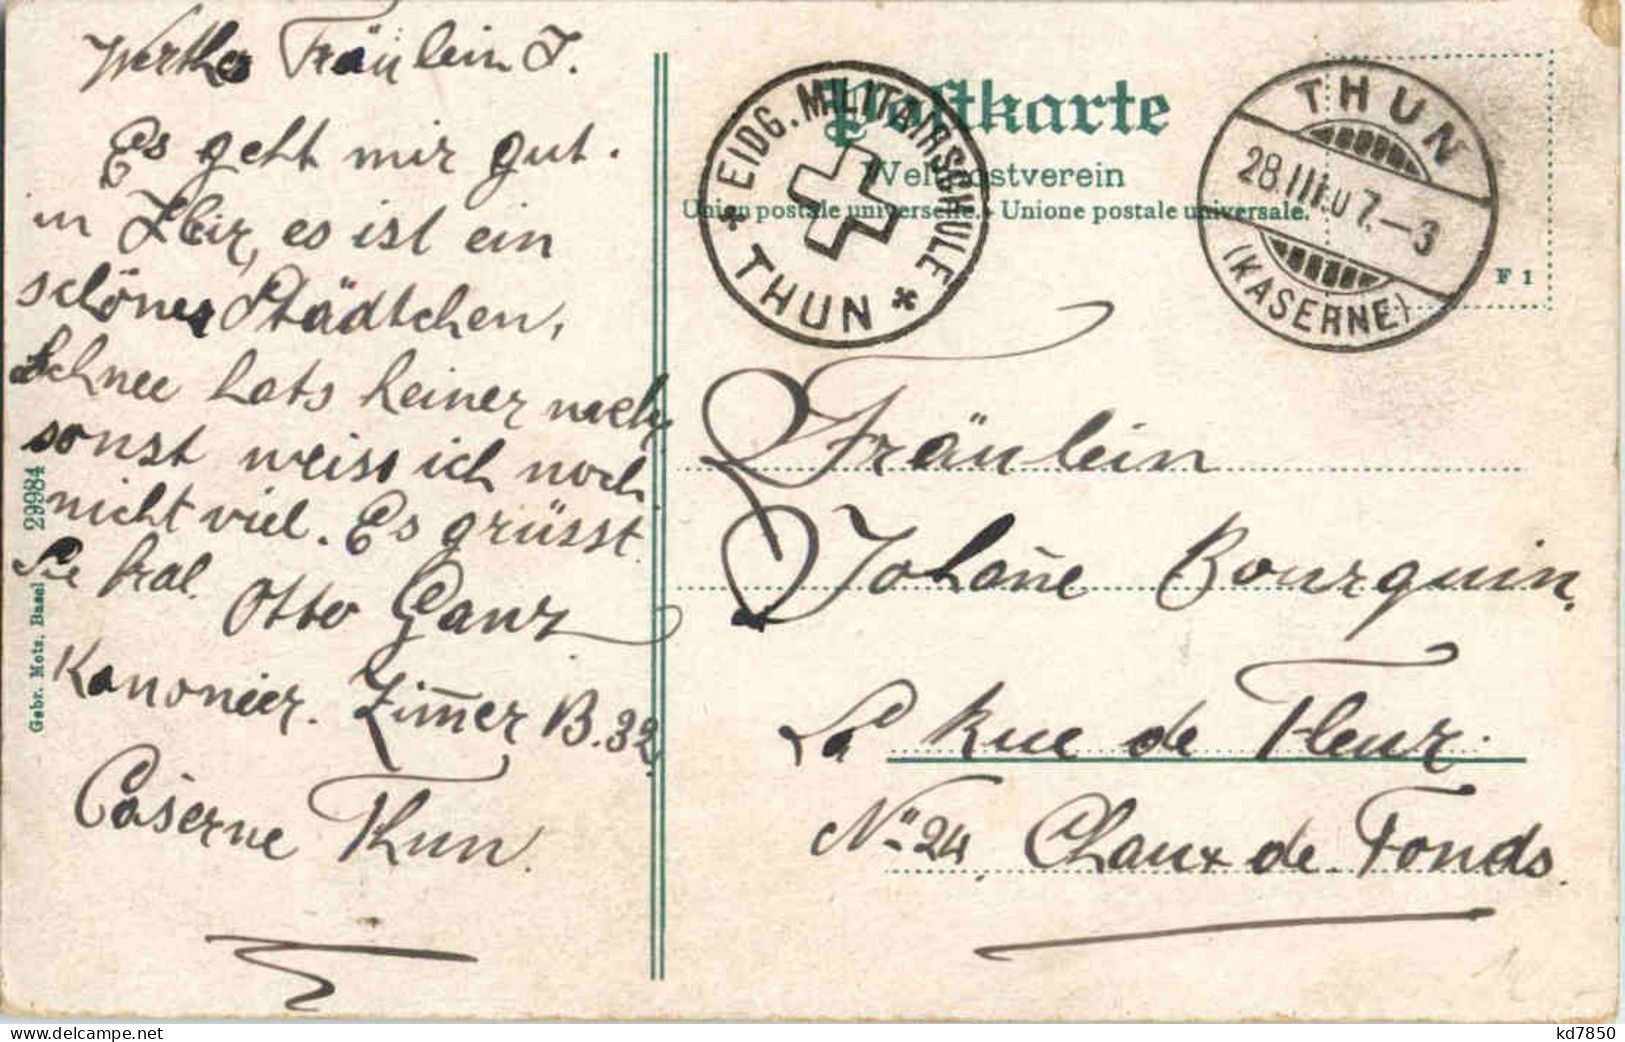 Werthes Fräulein J.
Es geht mir gut.
in hier, es ist ein
schönes Städtchen,
Schnee hats keiner mehr
sonst weiss ich noch
nicht viel. Es grüsst
Sie
Otto Ganz
Kanonier. Zim̅er B. 32
Caserne Thun.
Gebr. Metz, Basel 29984
Postkarte
Weltpostverein
Union postale universelle. - Unione postale universale.
* EIDG. MILITAIRSCHULE *
THUN
THUN
28.III.07.-3
(KASERNE)
F 1
Fräulein
Johan̅e Bourquin,
La Rue de Fleur.
No 24, Chaux de Fonds.
delcampe.net
kd7850